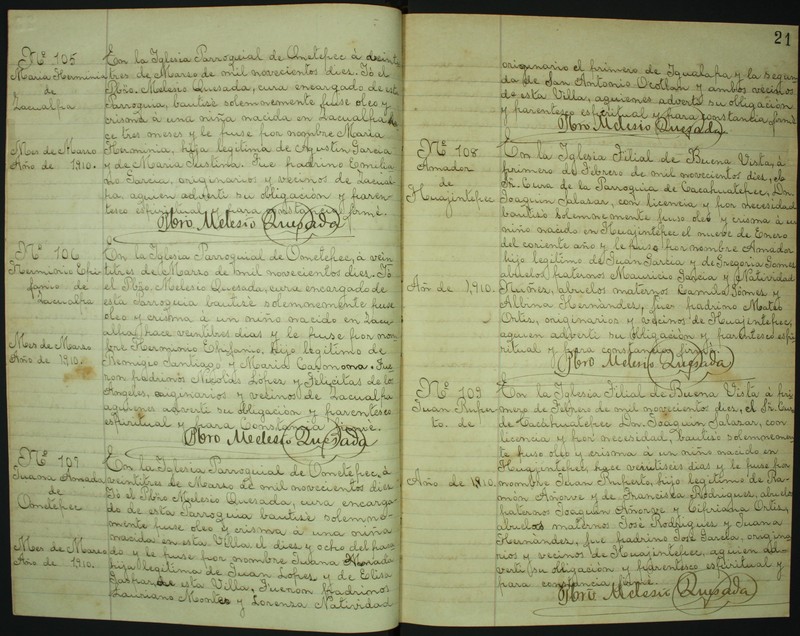 Nº 105
Maria Herminia
de
Zacualpa
Mes de Marzo
Año de 1910.
En la Iglesia Parroquial de Ometepec à veinti
tres de Marzo de mil novecientos diez. Yó el
Pbro. Melesio Quesada, cura encargado de esta
Parroquia, bautisé solemnemente puse oleo y
crisma à una niña nacida en Zacualpa
ce tres meses y le puse por nombre Maria
Herminia, hija legitima de Agustin Garcia
y de Maria Justina. Fue padrino Emilia
no Garcia, originarios y vecinos de Zacual
pa aquien adverti su obligación y paren-
tesco espiritual y para constancia firmé.
Pbro Melesio Quesada
Nº 106
Herminio Epi-
fanio de
Zacualpa
Mes de Marzo
Año de 1910.
En la Iglesia Parroquial de Ometepec, à vein
titres de Marzo de mil novecientos diez. Yó
el Pbro. Melesio Quesada, cura encargado de
esta Parroquia bautisé solemnemente puse
oleo y crisma à un niño nacido en Zacu
alpa, hace ventidos dias y le puse por nom
bre Herminio Epifanio, hijo legitimo de
Remigio Santiago y Maria. Fue
ron padrinos Nicolas Lopez y Felicitas de los
Angeles, originarios y vecinos de Zacualpa
aquienes adverti su obligación y parentesco
espiritual y para constancia firmé.
Pbro Melesio Quesada
Nº 107
Juana Amada
de
Ometepec
Mes de Marzo
Año de 1910.
En la Iglesia Parroquial de Ometepec, à
veintitres de Marzo de mil novecientos diez
Yó el Pbro Melesio Quesada, cura encarga-
do de esta Parroquia bautisé solemne-
mente puse oleo y crisma à una niña
nacida en esta Villa el diez y ocho del pasa
do y le puse por nombre Juana Amada
hija legitima de Juan Lopez y de Elisa
Gaspar de esta Villa, Fueron Padrinos
Lauriano Montes y Lorenza Natividad
21
originario el primero de Igualapa y la segun
da de San Antonio Ocotlan y ambos vecinos
de esta Villa, aquienes adverti su obligación
y parentesco espiritual y para constancia firmé
Pbro Melesio Quesada
Nº 108
Amador
de
Huajintepec
Año de 1910.
En la Iglesia Filial de Buena Vista, à
primero de Febrero de mil novecientos diez, el
Sr. Cura de la Parroquia de Cacahuatepec, Dn.
Joaquin Salazar, con licencia y por necesidad
bautisó solemnemente puso oleo y crisma à un
niño nacido en Huajintepec el nueve de Enero
del coriente año y le puso por nombre Amador
hijo legitimo de Juan Garcia y de Gregoria Gomes
abuelos paternos Mauricio Garcia y Natividad
Nuñez, abuelos maternos Camilo Gómes y
Albina Hernández, fué padrino Mateo
Ortis, originarios y vecinos de Huajintepec,
aquien adverti su obligación y parentesco espi-
ritual y para constancia firmé.
Pbro Melesio Quesada
Nº 109
Juan Ruper
to. de
Año de 1910.
En la Iglesia Filial de Buena Vista à pri
mero de Febrero de mil novecientos diez, el Sr. Cura
de Cacahuatepec Dn. Joaquin Salazar, con
licencia y por necesidad, bautisó solemnemen
te puso oleo y crisma à un niño nacido en
Huajintepec, hace veintiseis dias y le puso por
nombre Juan Ruperto, hijo legitimo de Ra-
món Añorve y de Franciska Rodrigues, abuelos
paternos Joaquin Añorve y Cipriana Ortis,
abuelos maternos José Rodrigues y Juana
Hernández, fué padrino José Garcia, origina
rios y vecinos de Huajintepec, aquien ad-
verti su obligación y parentesco espiritual y
para constancia firmé.
Pbro Melesio Quesada